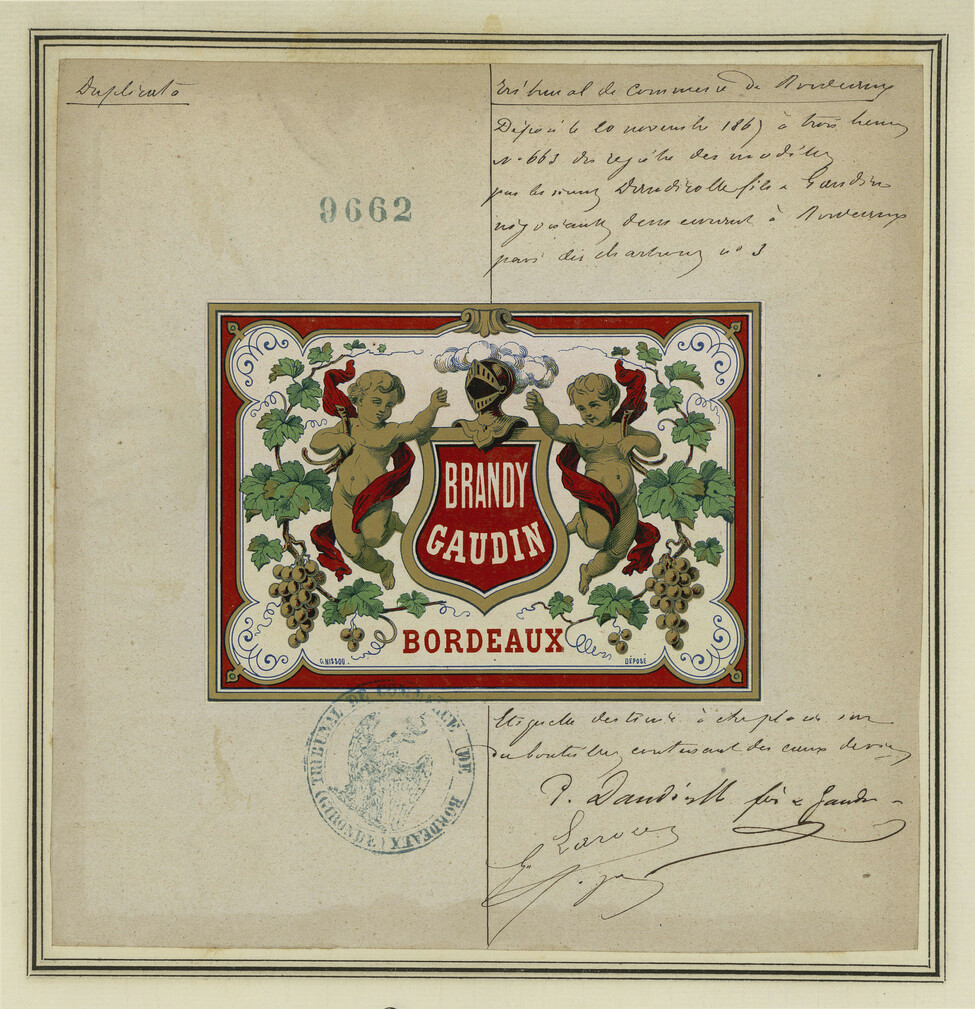 Duplicata
Tribunal de commerce de Bordeaux
Déposé le 20 novembre 1867 à trois heures
N° 663 du registre des modèles
par les sieurs Dandicolle fils & Gaudin
négociants demeurant à Bordeaux
pavé des chartrons n° 3
9662
BRANDY
GAUDIN
BORDEAUX
G. NISSOU.
DÉPOSÉ
TRIBUNAL DE COMMERCE DE BORDEAUX (GIRONDE)
Etiquette destinée à être placée sur
des bouteilles contenant des eaux de vie
P. Dandicolle fils & Gaudin